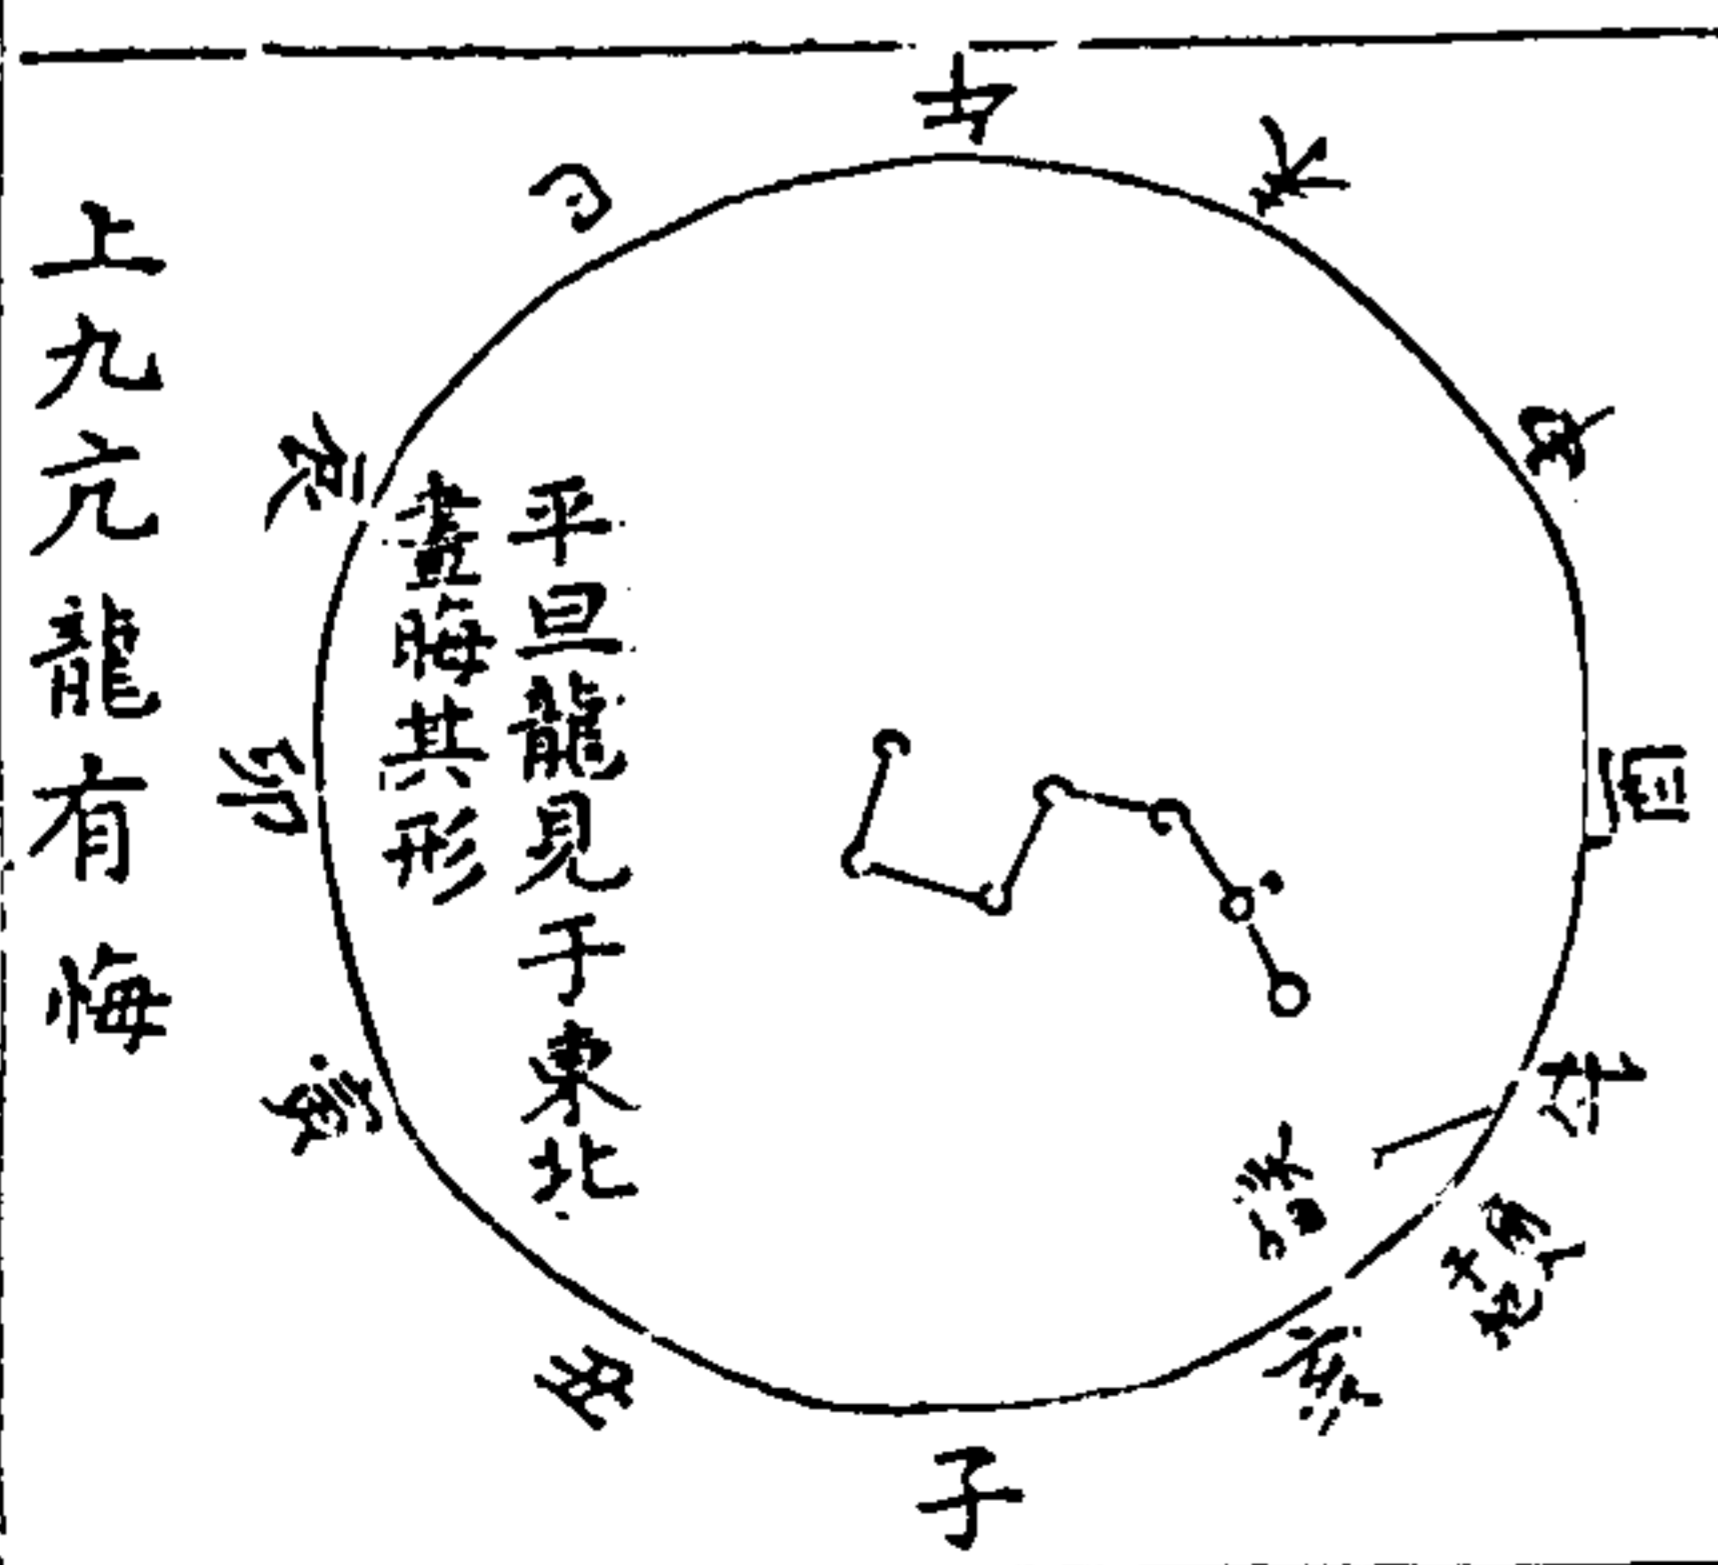 午
未
申
酉
戌
亥
子
丑
寅
卯
辰
巳
平旦龍見于東北
晝晦其形
上九亢龍有悔